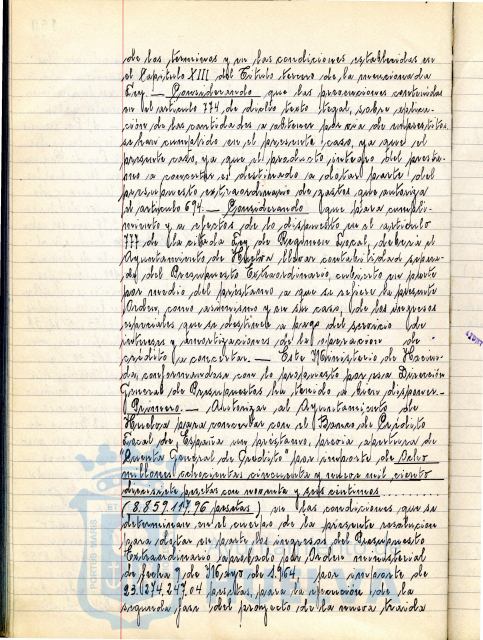 de los terminos y en las condiciones establecidas en
el Capítulo XIII del Título tercero de la mencionada
Ley.— Considerando que las prevenciones contenidas
en el artículo 774 de dicho texto legal, sobre aplica-
ción de las cantidades a obtener por vía de empréstitos,
se han cumplido en el presente caso, ya que el
presente caso, ya que el producto íntegro del présta-
mo a concertar es destinado a dotar parte del
presupuesto extraordinario de gastos que autoriza
el artículo 694.— Considerando que para cumpli-
miento y a efectos de lo dispuesto en el artículo
777 de la citada Ley de Régimen Local, deberá el
Ayuntamiento de Huelva llevar contabilidad separa-
da del Presupuesto Extraordinario, cubierto en parte
por medio del préstamo a que se refiere la presente
Orden, como asimismo y en su caso, de los ingresos
especiales que se destinen a pago del servicio de
intereses y amortizaciones de la operación de
crédito a concertar.— Este Ministerio de Hacien-
da, conformandose con lo propuesto por esa Dirección
General de Presupuestos ha tenido a bien disponer.—
Primero.— Autorizar al Ayuntamiento de
Huelva para concertar con el Banco de Crédito
Local de España un prestamo, previa apertura de
"Cuenta General de Crédito" por importe de Ocho
millones ochocientas cincuenta y nueve mil ciento
diecisiete pesetas con noventa y seis centimos
(8.859.117,96 pesetas), en las condiciones que se
determinan en el cuerpo de la presente resolución
para dotar en parte los ingresos del Presupuesto
Extraordinario aprobado por Orden ministerial
de fecha 7 de Mayo de 1.964 por importe de
23.274.247,04 pesetas, para la ejecución de la
segunda fase del proyecto de la nueva traida
PORTUS MARIS ET